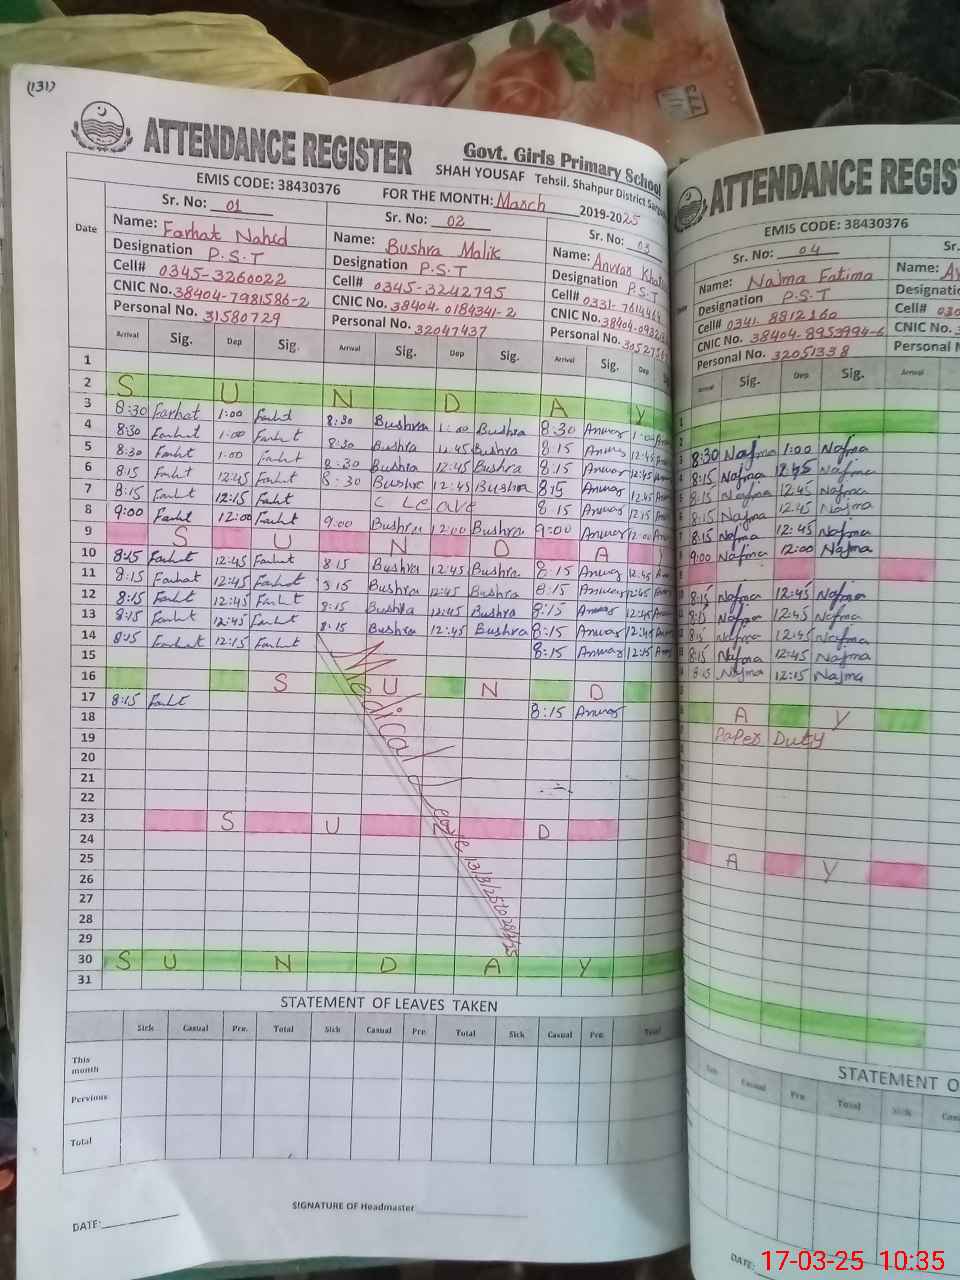 (131)
ATTENDANCE REGISTER
Govt. Girls Primary School
SHAH YOUSAF Tehsil. Shahpur District
EMIS CODE: 38430376
FOR THE MONTH: March 2019-2025
Date
Sr. No: 01
Name: Farhat Nahid
Designation P.S.T
Cell# 0345-3260022
CNIC No. 38404-7981586-2
Personal No. 31580729
Sr. No: 02
Name: Bushra Malik
Designation P.S.T
Cell# 0345-3242795
CNIC No. 38404-0184341-2
Personal No. 32047437
Sr. No: 03
Name: Anwar
Designation P.S.T
Cell# 0331-
CNIC No. 38404-
Personal No.
Arrival Sig. Dep Sig. Arrival Sig. Dep Sig. Arrival Sig. Dep
1
2 S U N D A Y
3 8:30 Farhat 1:00 Farht 8:30 Bushra 1:00 Bushra 8:30 Anwar 1:00
4 8:30 Farht 1:00 Farht 8:30 Bushra 12:45 Bushra 8:15 Anwar 12:45
5 8:30 Farht 1:00 Farht 8:30 Bushra 12:45 Bushra 8:15 Anwar 12:45
6 8:15 Farht 12:45 Farht 8:30 Bushra 12:45 Bushra 8:15 Anwar 12:45
7 8:15 Farht 12:15 Farht C Leave 8:15 Anwar 12:15
8 9:00 Farht 12:00 Farht 9:00 Bushra 12:00 Bushra 9:00 Anwar 12:00
9 S U N D A Y
10 8:15 Farht 12:45 Farht 8:15 Bushra 12:45 Bushra 8:15 Anwar 12:45
11 8:15 Farhat 12:45 Farhat 8:15 Bushra 12:45 Bushra 8:15 Anwar 12:45
12 8:15 Farht 12:45 Farht 8:15 Bushra 12:45 Bushra 8:15 Anwar 12:45
13 8:15 Farht 12:45 Farht 8:15 Bushra 12:45 Bushra 8:15 Anwar 12:45
14 8:15 Farhat 12:15 Farht 8:15 Anwar 12:15
15
16 S U N D
17 8:15 Farht 8:15 Anwar
18
19
20
21
22
23 S U N D
24
25
26
27
28
29
30 S U N D A Y
31
Medical Leave 13/3/25 to
STATEMENT OF LEAVES TAKEN
Sick Casual Pre. Total Sick Casual Pre. Total Sick Casual Pre. Total
This month
Pervious
Total
SIGNATURE OF Headmaster
DATE:
ATTENDANCE REGIS
EMIS CODE: 38430376
Sr. No: 04
Name: Najma Fatima
Designation P.S.T
Cell# 0341-8812160
CNIC No. 38404-8953994-6
Personal No. 32051338
Sr.
Name:
Designati
Cell#
CNIC No.
Personal N
Arrival Sig. Dep Sig. Arrival
8:30 Najma 1:00 Najma
8:15 Najma 12:45 Najma
8:15 Najma 12:45 Najma
8:15 Najma 12:45 Najma
8:15 Najma 12:45 Najma
9:00 Najma 12:00 Najma
8:15 Najma 12:45 Najma
8:15 Najma 12:45 Najma
8:15 Najma 12:45 Najma
8:15 Najma 12:45 Najma
8:15 Najma 12:15 Najma
A Y
Paper Duty
A Y
STATEMENT O
Casual Pre. Total Sick
DATE:
17-03-25 10:35